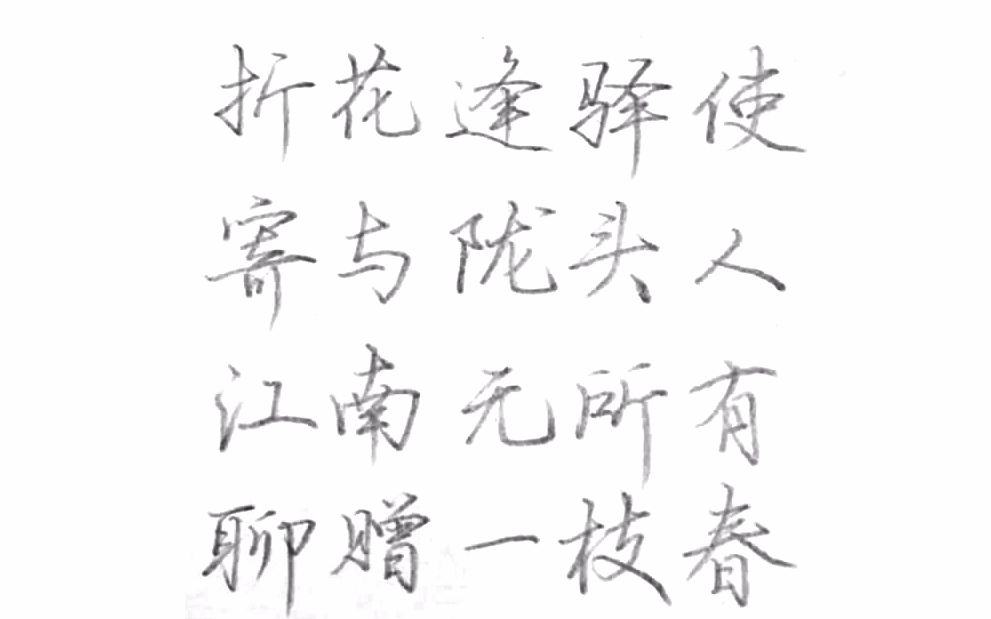 折花逢驿使
寄与陇头人
江南无所有
聊赠一枝春